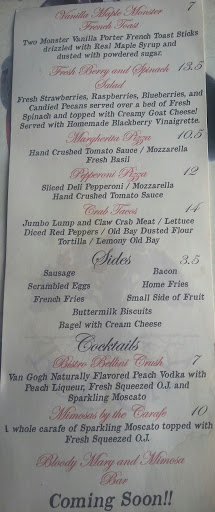 Vanilla Maple Monster 7
French Toast
Two Monster Vanilla Porter French Toast Sticks
drizzled with Real Maple Syrup and
dusted with powdered sugar.
Fresh Berry and Spinach 13.5
Salad
Fresh Strawberries, Raspberries, Blueberries, and
Candied Pecans served over a bed of Fresh
Spinach and topped with Creamy Goat Cheese!
Served with Homemade Blackberry Vinaigrette.
Margherita Pizza 10.5
Hand Crushed Tomato Sauce / Mozzarella
Fresh Basil
Pepperoni Pizza 12
Sliced Deli Pepperoni / Mozzarella
Hand Crushed Tomato Sauce
Crab Tacos 14
Jumbo Lump and Claw Crab Meat / Lettuce
Diced Red Peppers / Old Bay Dusted Flour
Tortilla / Lemony Old Bay
Sides 3.5
Sausage Bacon
Scrambled Eggs Home Fries
French Fries Small Side of Fruit
Buttermilk Biscuits
Bagel with Cream Cheese
Cocktails
Bistro Bellini Crush 7
Van Gogh Naturally Flavored Peach Vodka with
Peach Liqueur, Fresh Squeezed O.J. and
Sparkling Moscato
Mimosas by the Carafe 10
A whole carafe of Sparkling Moscato topped with
Fresh Squeezed O.J.
Bloody Mary and Mimosa
Bar
Coming Soon!!